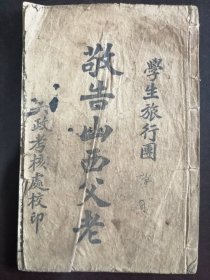 學生旅行團
敬告山西父老
政考核處校印